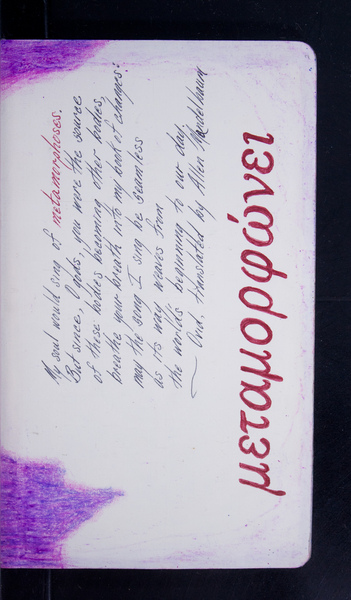 My soul would sing of metamorphoses.
But since, O gods, you were the source
of these bodies becoming other bodies,
breathe your breath into my book of changes:
may the song I sing be seamless
as its way weaves from
the world's beginning to our day.
— Ovid, translated by Allen Mandelbaum
μεταμορφώνει